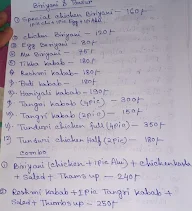 Biriyani & Tandur
① Special chicken Biriyani - 160/-
② chicken Biriyani - 130/-
③ Egg Biriyani - 80/-
④ Alu Biriyani - 75/-
⑤ Tikka kabab - 180/-
⑥ Reshmi kabab - 180/-
⑦ kabab - 180/-
⑧ Hariyali kabab - 190/-
⑨ Tangri kabab (4pic) - 300/-
⑩ Tangri kabab (2pic) - 150/-
⑪ Tunduri chicken full (4pic) - 350/-
⑫ Tunduri chicken Half (2pic) - 180/-
Combo
① Biriyani (chicken + 1pic Alu) + chicken
+ Salad + Thumsup - 240/-
② Reshmi kabab + 1pic Tangri kabab +
Salad + Thumbsup - 250/-